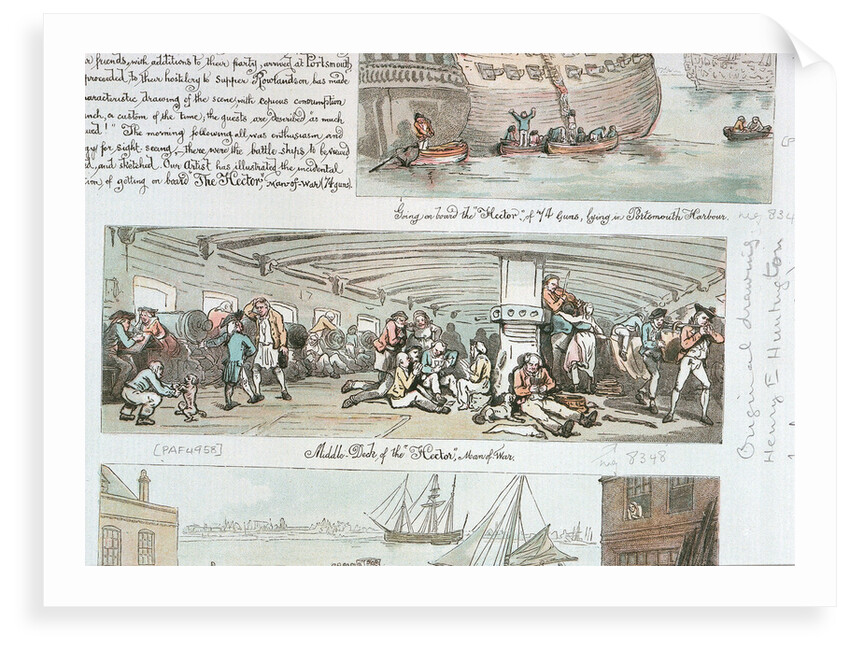 r friends, with additions to their party, arrived at Portsmouth,
proceeded to their hostelery to Supper Rowlandson has made
haracteristic drawing of the scene, with copious consumption
unch, a custom of the time; the guests are described "as much
ued!" The morning following all was enthusiasm and
gy for sight seeing, there were the battle ships to be viewed
d, and sketched. Our Artist has illustrated the incidental
ion of getting on board "The Hector," Man-of-War (74 guns).
Going on board the "Hector", of 74 Guns, lying in Portsmouth Harbour.
neg 834
Original drawing
Henry E Huntington
[PAF4958]
Middle-Deck of the "Hector", Man of War.
neg 8348